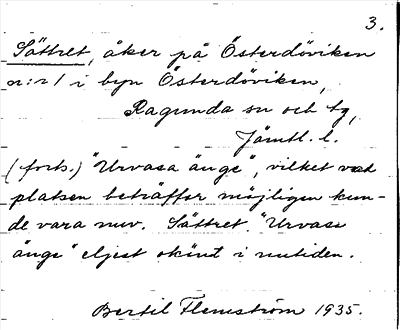 3.
Sättret, åker på Österdöviken
nr:r 1 i byn Österdöviken,
Ragunda sn och tg,
Jämtl. l.
(forts.) "Urvasa änge", vilket vad
platsen beträffar möjligen kun-
de vara nuv. Sättret. "Urvass
änge" eljest okänt i nutiden.
Bertil Flemström 1935.